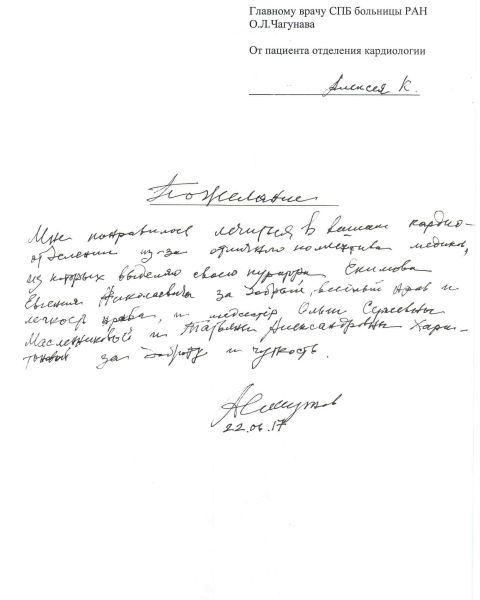 Главному врачу СПБ больницы РАН
О.Л.Чагунава
От пациента отделения кардиологии
Алексея К.
Пожелание
Мне понравилось лечиться в вашем кардио-
отделении из-за отличного коллектива медиков,
из которых выделяю своего Екимова
Евгения Николаевича за добрый, весёлый нрав и
и медсестёр Ольги Сергеевны
Масленниковой и Татьяны Александровны Хари-
тоновой за доброту и чуткость.
22.06.17